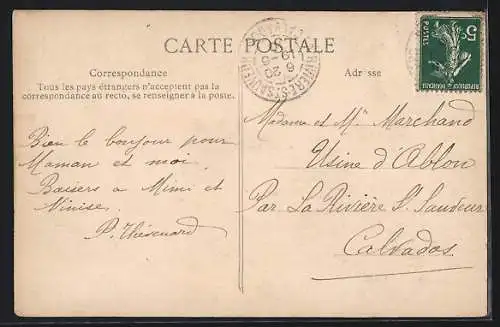 CARTE POSTALE
Correspondance
Tous les pays étrangers n'acceptent pas la
correspondance au recto, se renseigner à la poste.
Adr sse
5c
POSTES
Bien le bonjour pour
Maman et moi
Baisers a Mimi et
Ninise.
P. Thévenard
Madame et Mr Marchand
Usine d'Ablon
Par La Rivière St Sauveur
Calvados